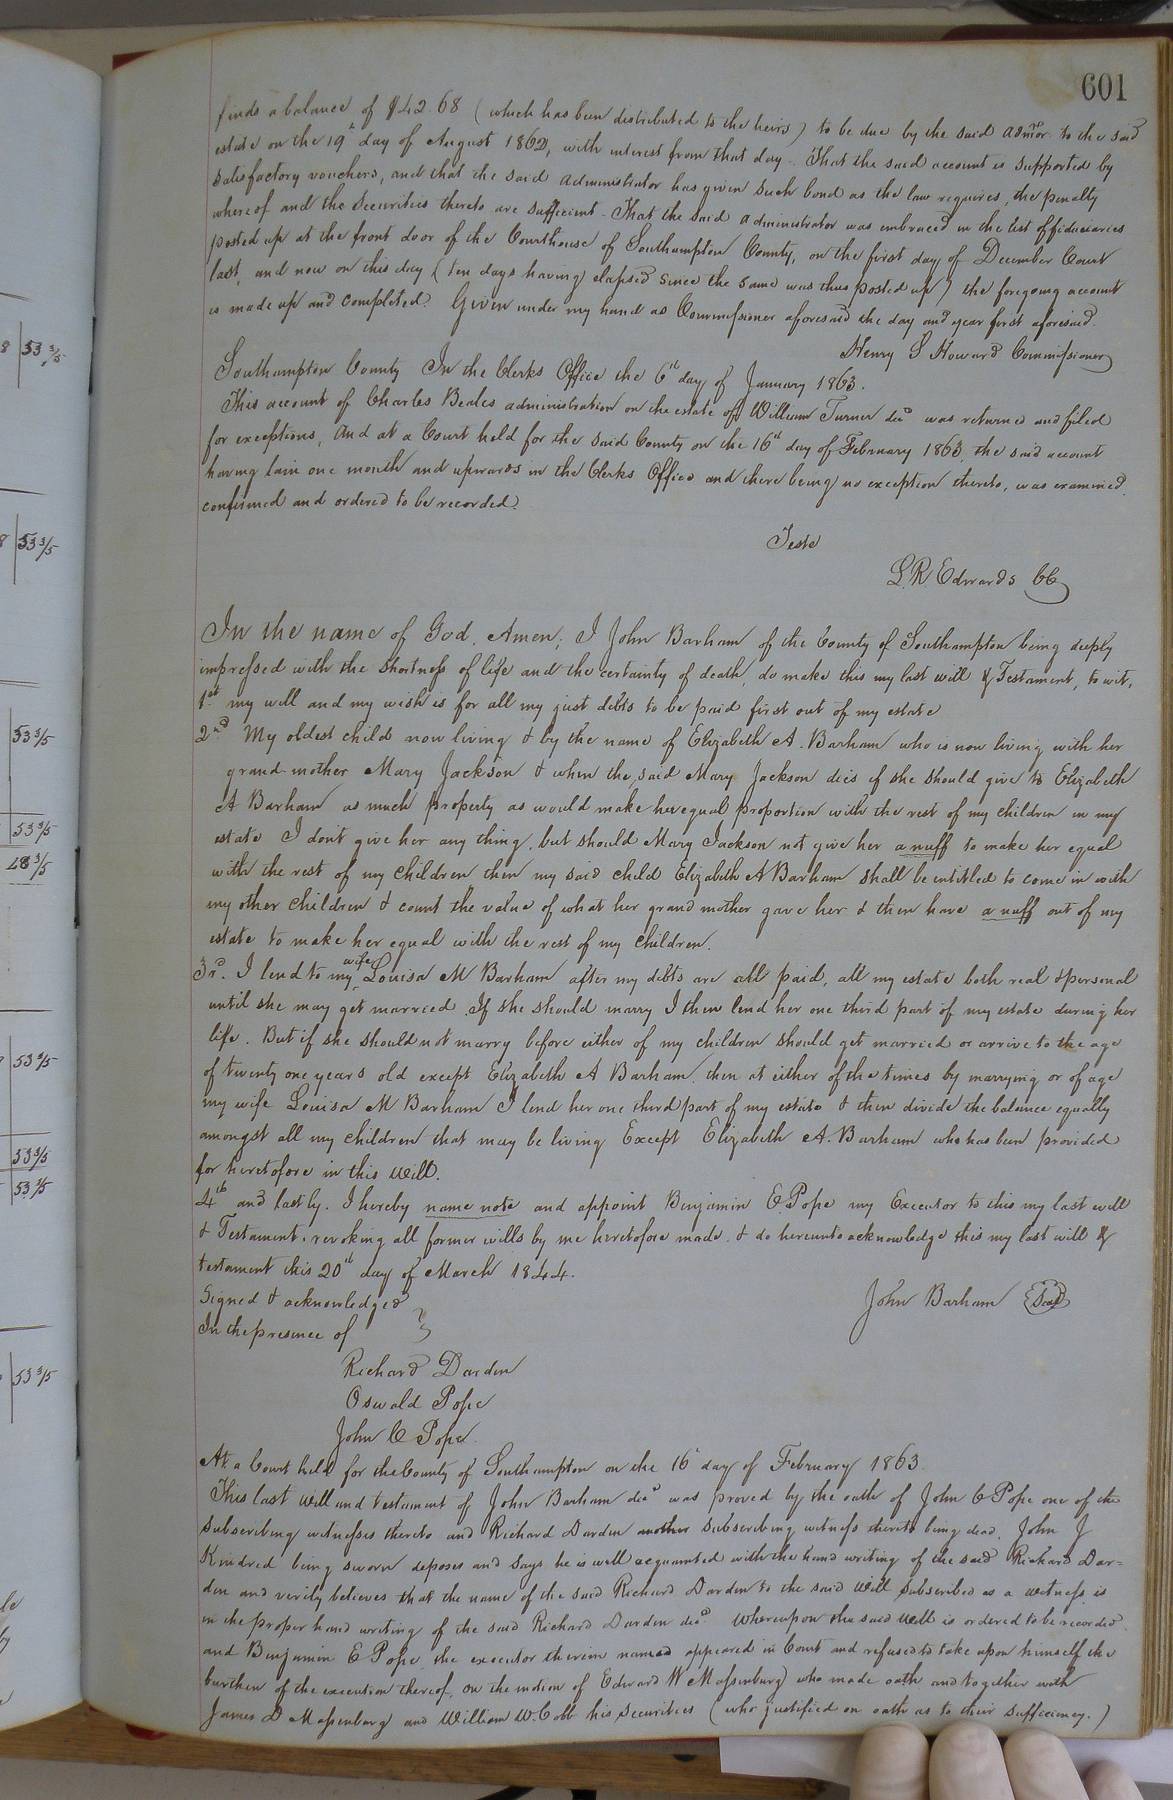 601
finds a balance of $42.68 (which has been distributed to the heirs) to be due by the said admor to the said
estate on the 19th day of August 1862, with interest from that day. That the said account is supported by
satisfactory vouchers, and that the said administrator has given such bond as the law requires, the penalty
whereof and the securities thereto are sufficient. That the said administrator was embraced in the list of fiduciaries
posted up at the front door of the Courthouse of Southampton County, on the first day of December Court
last, and now on this day (ten days having elapsed since the same was thus posted up) the foregoing account
is made up and completed. Given under my hand as Commissioner aforesaid the day and year first aforesaid.
Henry S Howard Commissioner
Southampton County In the Clerks Office the 6th day of January 1863.
This account of Charles Beales administration on the estate of William Turner decd was returned and filed
for exceptions, And at a Court held for the said County on the 16th day of February 1863, the said account
having lain one month and upwards in the Clerks Office and there being no exception thereto, was examined
confirmed and ordered to be recorded.
Teste
L.R. Edwards CC
In the name of God, Amen; I John Barham of the County of Southampton being deeply
impressed with the shortness of life and the certainty of death, do make this my last will & Testament, to wit,
1st my will and my wish is for all my just debts to be paid first out of my estate
2nd My oldest child now living & by the name of Elizabeth A. Barham who is now living with her
grand-mother Mary Jackson & when the said Mary Jackson dies if she should give to Elizabeth
A Barham as much property as would make her equal proportion with the rest of my children in my
estate I dont give her any thing, but should Mary Jackson not give her a nuff to make her equal
with the rest of my children then my said child Elizabeth A Barham shall be entitled to come in with
my other children & count the value of what her grand mother gave her & then have a nuff out of my
estate to make her equal with the rest of my children.
3rd. I lend to my wife Louisa M Barham after my debts are all paid, all my estate both real & personal
until she may get married. If she should marry I then lend her one third part of my estate during her
life. But if she should not marry before either of my children should get married or arrive to the age
of twenty one years old except Elizabeth A Barham, then at either of the times by marrying or of age
my wife Louisa M Barham I lend her one third part of my estate & then divide the balance equally
amongst all my children that may be living Except Elizabeth A. Barham who has been provided
for heretofore in this will.
4th and lastly. I hereby name note and appoint Benjamin E. Pope my Executor to this my last will
& Testament, revoking all former wills by me heretofore made & do hereunto acknowledge this my last will &
testament this 20th day of March 1844.
Signed & acknowledged
In the presence of
John Barham Seal
Richard Darden
Oswald Pope
John C Pope
At a Court held for the County of Southampton on the 16 day of February 1863
This last will and testament of John Barham decd was proved by the oath of John C Pope one of the
subscribing witnesses thereto and Richard Darden another subscribing witness thereto being dead, John J
Kindred being sworn deposes and says he is well acquainted with the hand writing of the said Richard Dar=
den and verily believes that the name of the said Richard Darden to the said will subscribed as a witness is
in the proper hand writing of the said Richard Darden decd Whereupon the said will is ordered to be recorded
and Benjamin E Pope, the executor therein named appeared in Court and refused to take upon himself the
burthen of the execution thereof, on the motion of Edward W Massenburg who made oath and together with
James D Massenburg and William W. Cobb his securities (who justified on oath as to their sufficiency.)
53 3/5
53 3/5
53 3/5
53 3/5
53 3/5
53 3/5
53 3/5
53 3/5